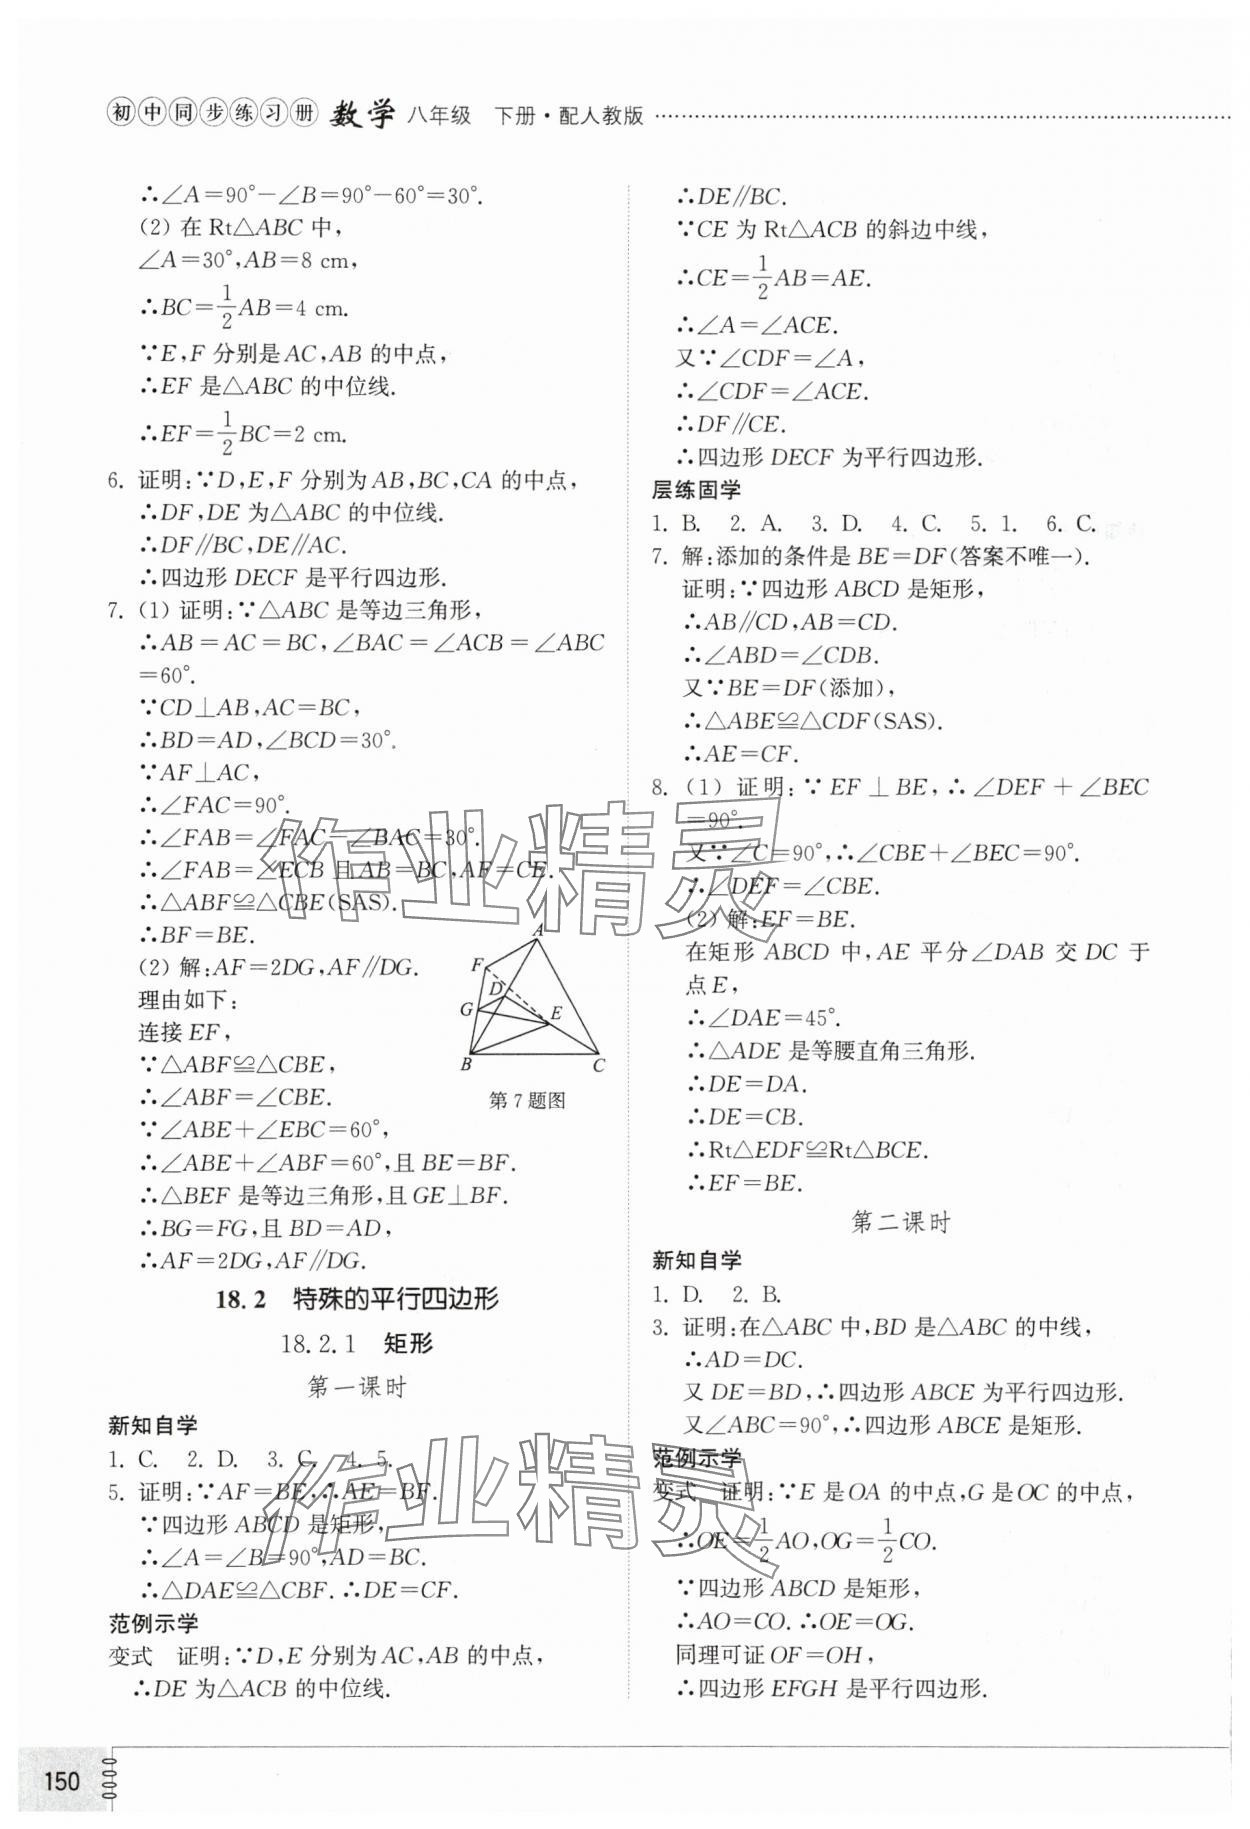 初中同步练习册 数学 八年级 下册·配人教版
∴∠A=90°-∠B=90°-60°=30°.
(2) 在 Rt△ABC 中,
∠A=30°,AB=8 cm,
∴BC=1/2AB=4 cm.
∵E,F 分别是 AC,AB 的中点,
∴EF 是△ABC 的中位线.
∴EF=1/2BC=2 cm.
6. 证明:∵D,E,F 分别为 AB,BC,CA 的中点,
∴DF,DE 为△ABC 的中位线.
∴DF∥BC,DE∥AC.
∴四边形 DECF 是平行四边形.
7. (1) 证明:∵△ABC 是等边三角形,
∴AB=AC=BC,∠BAC=∠ACB=∠ABC
=60°.
∵CD⊥AB,AC=BC,
∴BD=AD,∠BCD=30°.
∵AF⊥AC,
∴∠FAC=90°.
∴∠FAB=∠FAC-∠BAC=30°.
∴∠FAB=∠ECB 且 AB=BC,AF=CE.
∴△ABF≌△CBE(SAS).
∴BF=BE.
(2) 解:AF=2DG,AF∥DG.
理由如下:
连接 EF,
∵△ABF≌△CBE,
∴∠ABF=∠CBE.
∵∠ABE+∠EBC=60°,
∴∠ABE+∠ABF=60°,且 BE=BF.
∴△BEF 是等边三角形,且 GE⊥BF.
∴BG=FG,且 BD=AD,
∴AF=2DG,AF∥DG.
A
F
D
G
E
B
C
第 7 题图
18.2 特殊的平行四边形
18.2.1 矩形
第一课时
新知自学
1. C. 2. D. 3. C. 4. 5.
5. 证明:∵AF=BE,∴AE=BF.
∵四边形 ABCD 是矩形,
∴∠A=∠B=90°,AD=BC.
∴△DAE≌△CBF. ∴DE=CF.
范例示学
变式 证明:∵D,E 分别为 AC,AB 的中点,
∴DE 为△ACB 的中位线.
∴DE∥BC.
∵CE 为 Rt△ACB 的斜边中线,
∴CE=1/2AB=AE.
∴∠A=∠ACE.
又∵∠CDF=∠A,
∴∠CDF=∠ACE.
∴DF∥CE.
∴四边形 DECF 为平行四边形.
层练固学
1. B. 2. A. 3. D. 4. C. 5. 1. 6. C.
7. 解:添加的条件是 BE=DF(答案不唯一).
证明:∵四边形 ABCD 是矩形,
∴AB∥CD,AB=CD.
∴∠ABD=∠CDB.
又∵BE=DF(添加),
∴△ABE≌△CDF(SAS).
∴AE=CF.
8. (1) 证明:∵EF⊥BE,∴∠DEF+∠BEC
=90°.
又∵∠C=90°,∴∠CBE+∠BEC=90°.
∴∠DEF=∠CBE.
(2) 解:EF=BE.
在矩形 ABCD 中,AE 平分∠DAB 交 DC 于
点 E,
∴∠DAE=45°.
∴△ADE 是等腰直角三角形.
∴DE=DA.
∴DE=CB.
∴Rt△EDF≌Rt△BCE.
∴EF=BE.
第二课时
新知自学
1. D. 2. B.
3. 证明:在△ABC 中,BD 是△ABC 的中线,
∴AD=DC.
又 DE=BD,∴四边形 ABCE 为平行四边形.
又∠ABC=90°,∴四边形 ABCE 是矩形.
范例示学
变式 证明:∵E 是 OA 的中点,G 是 OC 的中点,
∴OE=1/2AO,OG=1/2CO.
∵四边形 ABCD 是矩形,
∴AO=CO. ∴OE=OG.
同理可证 OF=OH,
∴四边形 EFGH 是平行四边形.
作业精灵
作业精灵
150